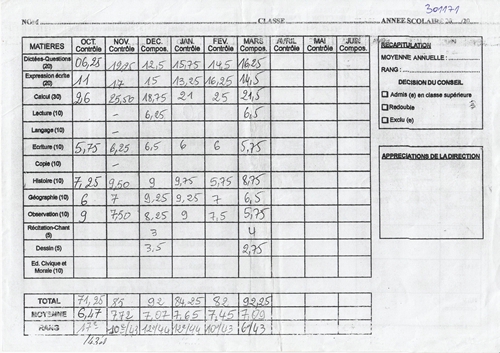 301171
CLASSE ANNEE SCOLAIRE
MATIERES OCT. Contrôle NOV. Contrôle DEC. Compos. JAN. Contrôle FEV. Contrôle MARS Compos. AVRIL Contrôle MAI Contrôle JUIN Compos.
Dictées-Questions (20) 06,25 12,5 15,75 14,5 16,25
Expression écrite (20) 11 17 15 13,25 16,25 14,5
Calcul (30) 26 25,50 18,75 21 25 21,5
Lecture (10) - 6,25 6,5
Langage (10)
Ecriture (10) 5,75 6,25 6,5 6 6 5,75
Copie (10) -
Histoire (10) 7,25 9,50 9 9,75 5,75 8,75
Géographie (10) 6 7 9,25 9,25 7 6,5
Observation (10) 9 7,50 8,25 9 7,5 5,75
Récitation-Chant (5) 3 4
Dessin (5) 3,5 2,75
Ed. Civique et Morale (10)
TOTAL 71,25 85 92 84,25 82 92,25
MOYENNE 6,47 7,72 7,07 7,65 7,45 7,09
RANG 17e 10e/43 12e/44 12e/44 10e/43 6/43
RECAPITULATION
MOYENNE ANNUELLE :
RANG :
DECISION DU CONSEIL
Admis (e) en classe supérieure
Redouble
Exclu (e)
APPRECIATIONS DE LA DIRECTION